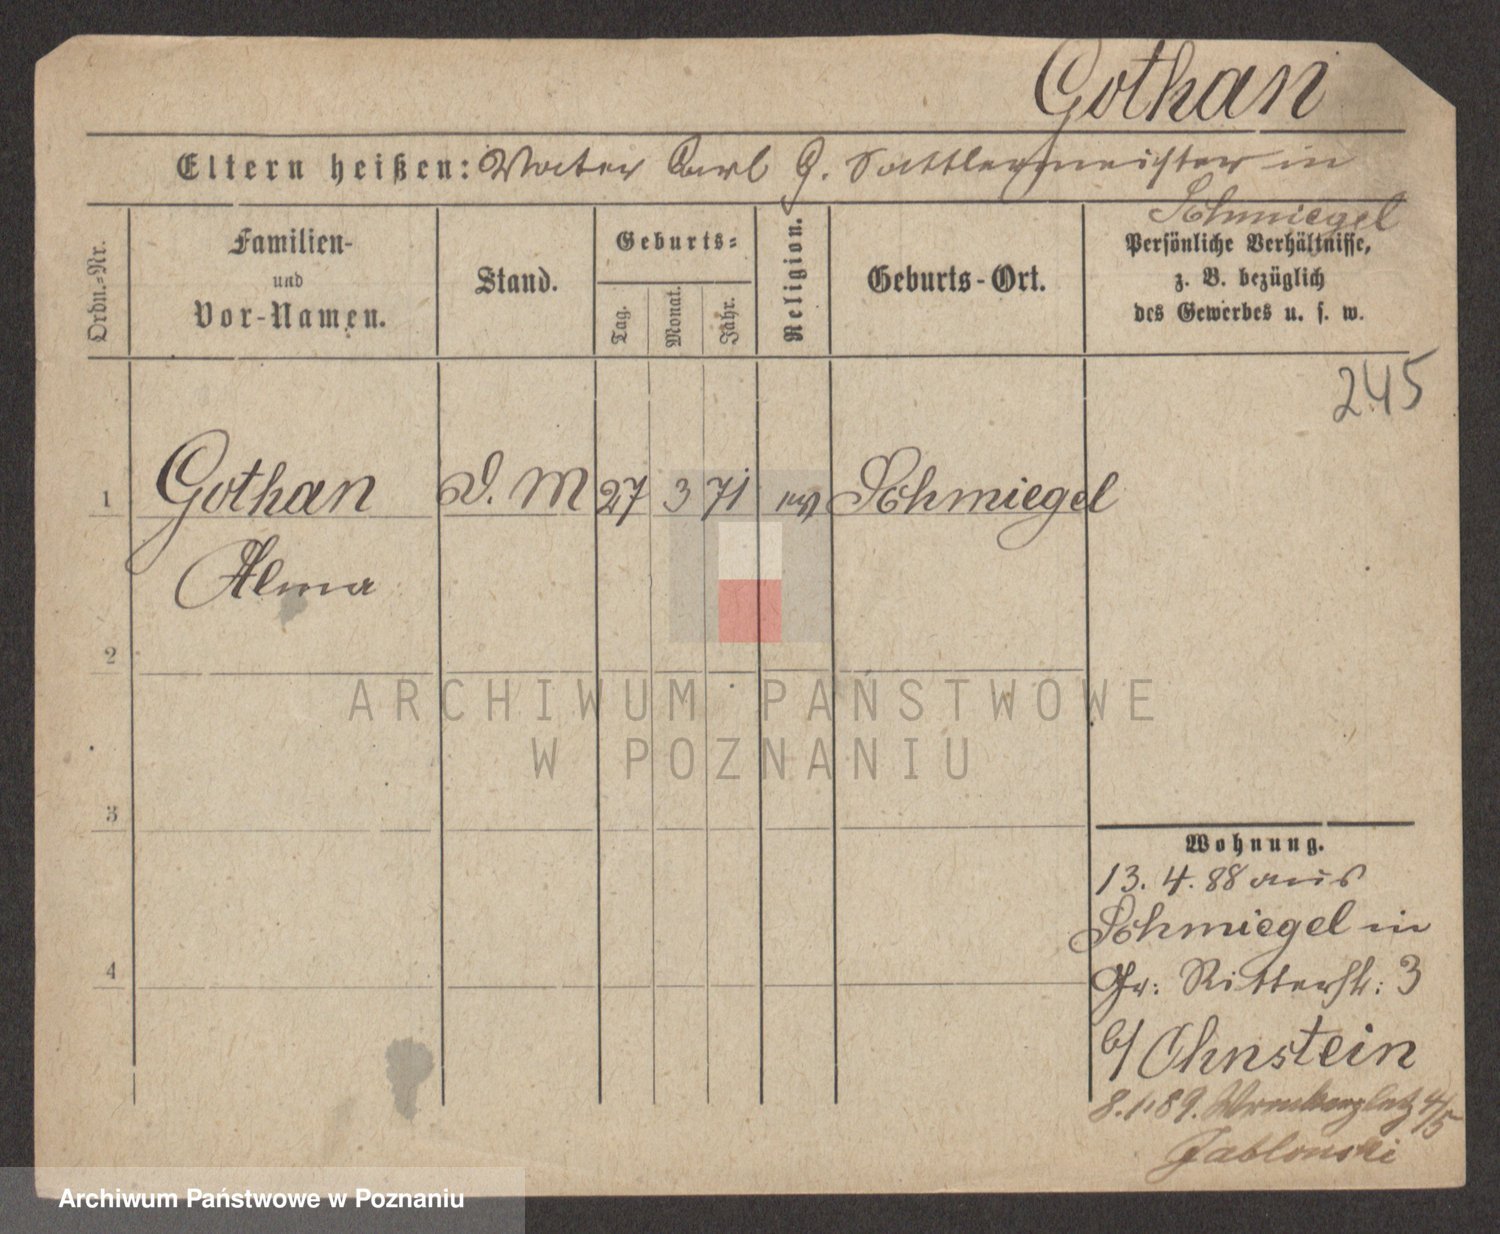 Gothan
Eltern heißen: Vater Carl G. Sattlermeister in
Schmiegel
Ordn.-Nr.
Familien-
und
Vor-Namen.
Stand.
Geburts-
Tag.
Monat.
Jahr.
Religion.
Geburts-Ort.
Persönliche Verhältnisse,
z. B. bezüglich
des Gewerbes u. s. w.
245
1 Gothan D. M 27 3 71 ev Schmiegel
Alma
2
ARCHIWUM PAŃSTWOWE
W POZNANIU
3
Wohnung.
13. 4. 88 aus
Schmiegel in
4
Gr: Ritterstr: 3
b/ Ohnstein
8. 1. 89. 4/5
Jablonski
Archiwum Państwowe w Poznaniu